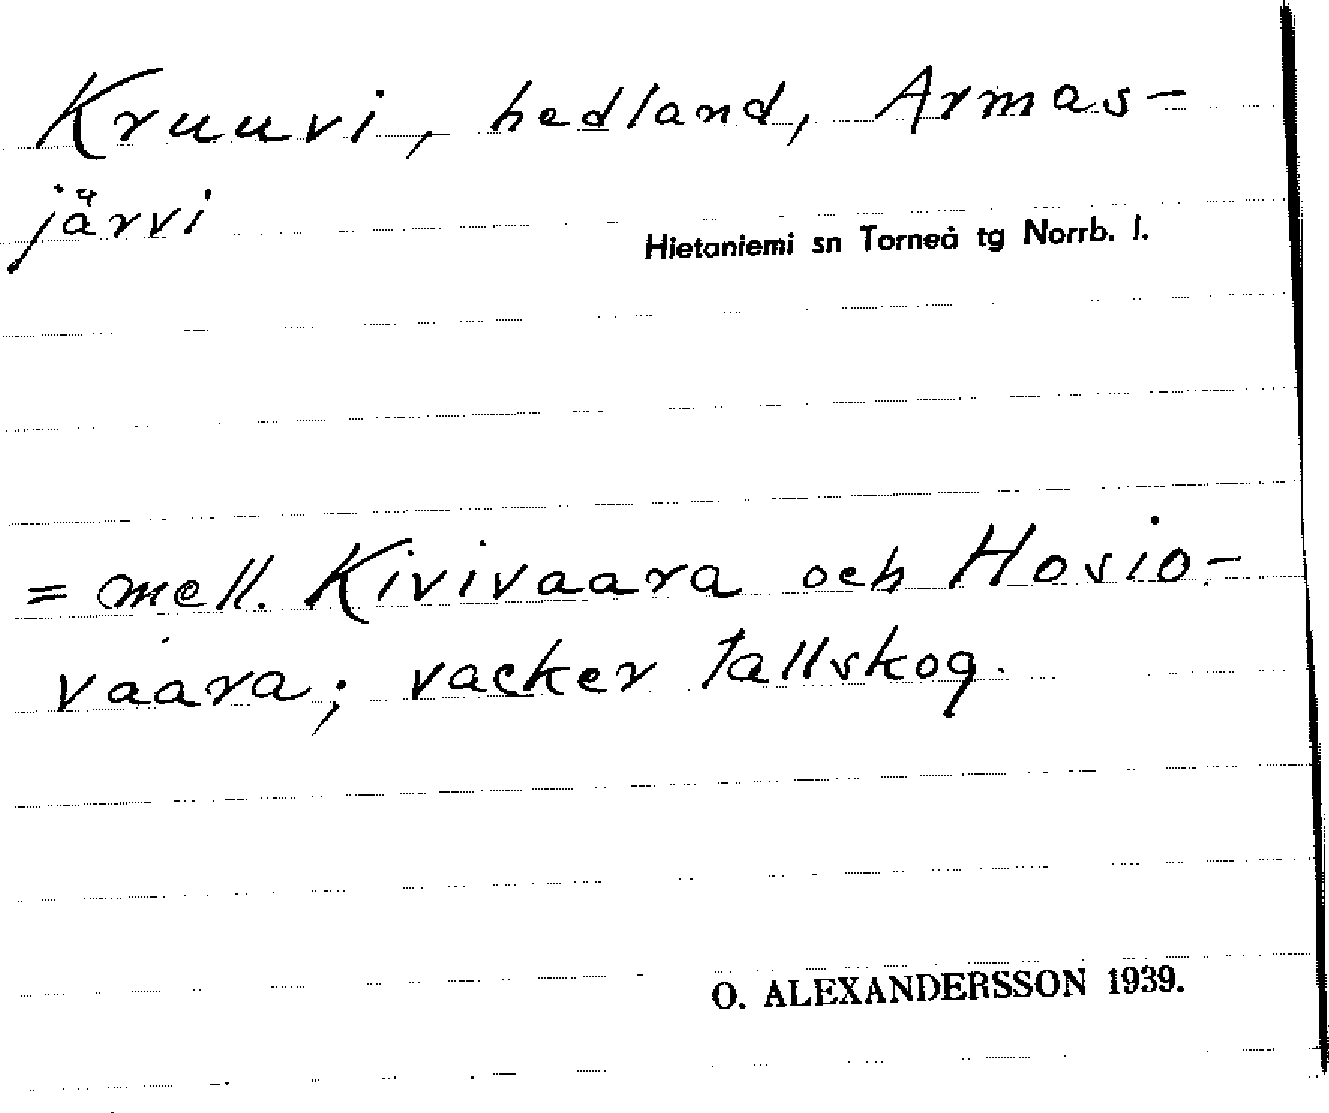 Kruuvi, hedland, Armas-
järvi
Hietaniemi sn Torneå tg Norrb. l.
= mell. Kivivaara och Hosio-
vaara; vacker tallskog.
O. ALEXANDERSSON 1939.